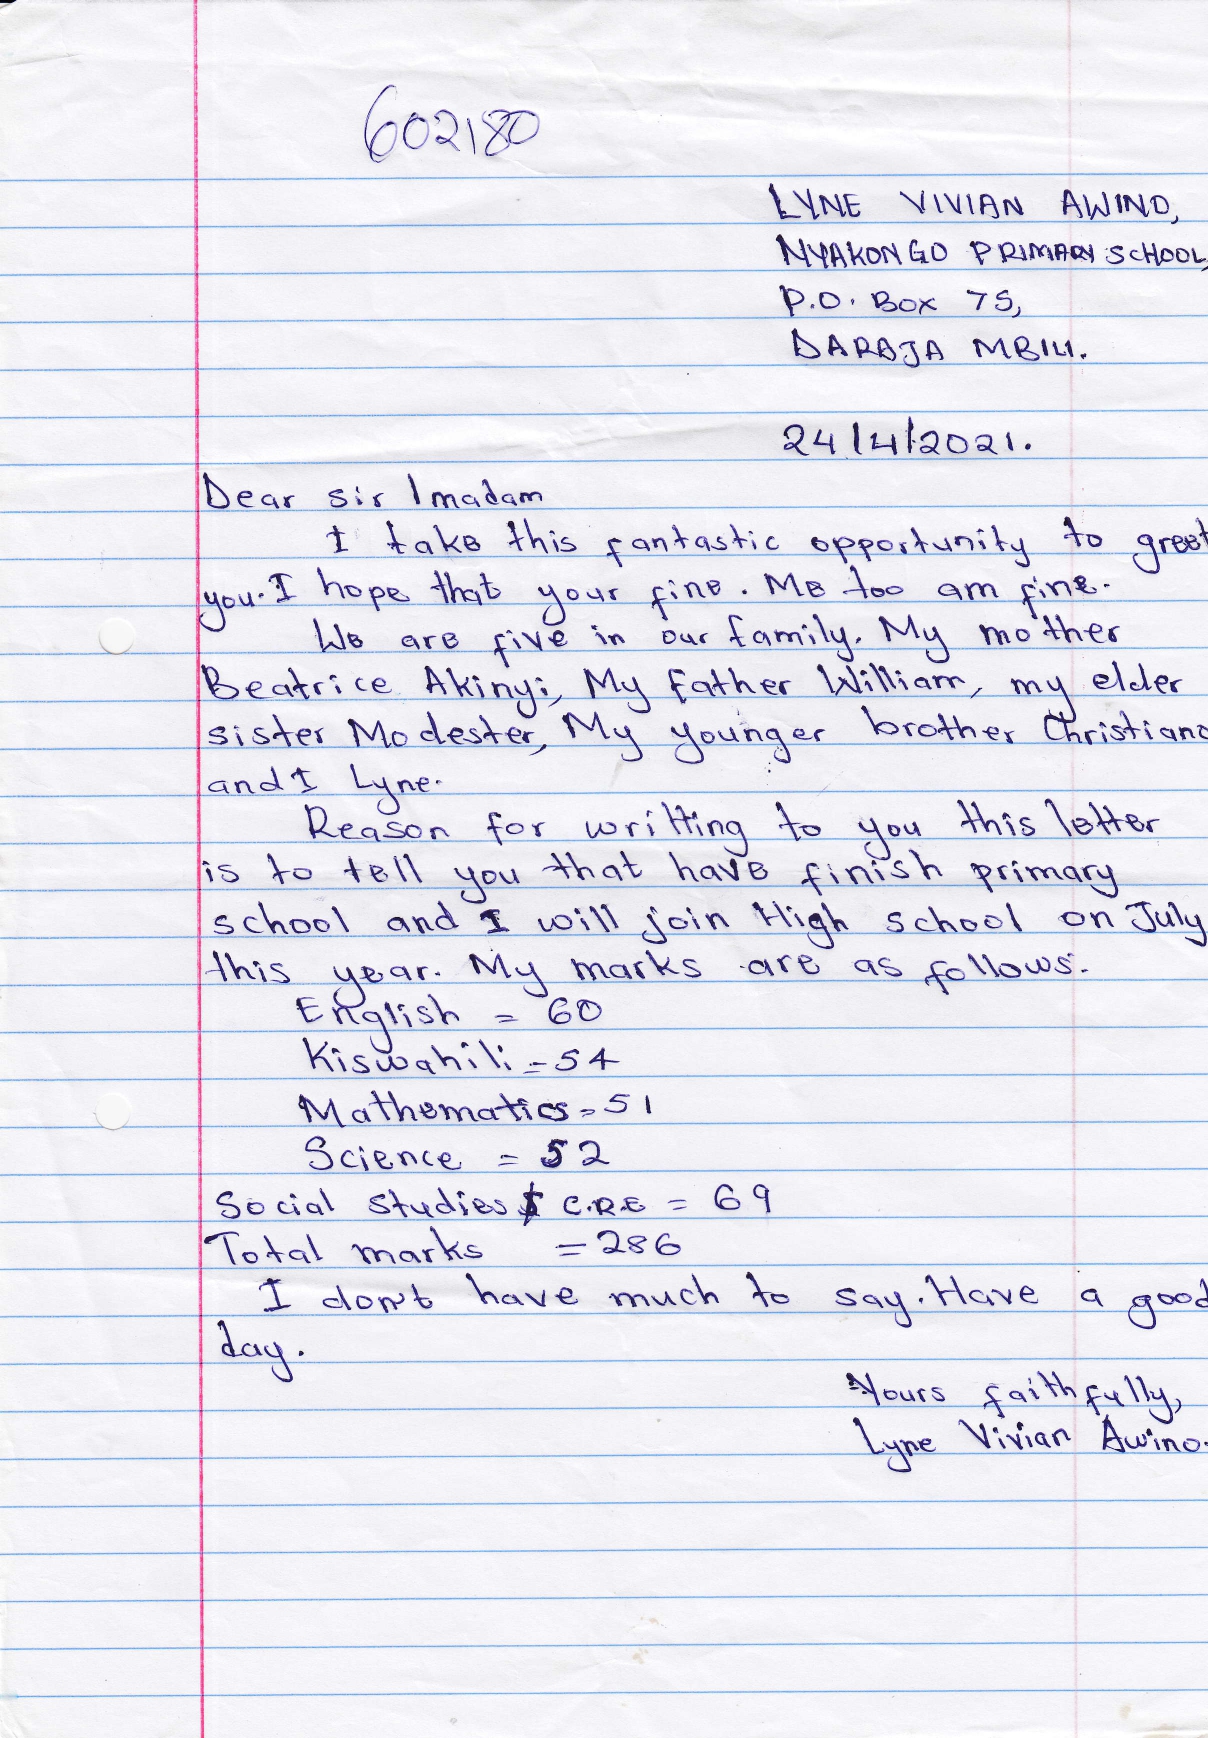 602180
LYNE VIVIAN AWINO,
NYAKONGO PRIMARY SCHOOL,
P.O. BOX 75,
DARAJA MBILI.
24/4/2021.
Dear sir / madam
I take this fantastic opportunity to greet
you. I hope that your fine. Me too am fine.
We are five in our family. My mother
Beatrice Akinyi, My father William, my elder
sister Modester, My younger brother Christiano
and I Lyne.
Reason for writting to you this letter
is to tell you that have finish primary
school and I will join High school on July
this year. My marks are as follows.
English = 60
Kiswahili = 54
Mathematics = 51
Science = 52
Social studies $ C.R.E = 69
Total marks = 286
I don't have much to say. Have a good
day.
Yours faithfully,
Lyne Vivian Awino.